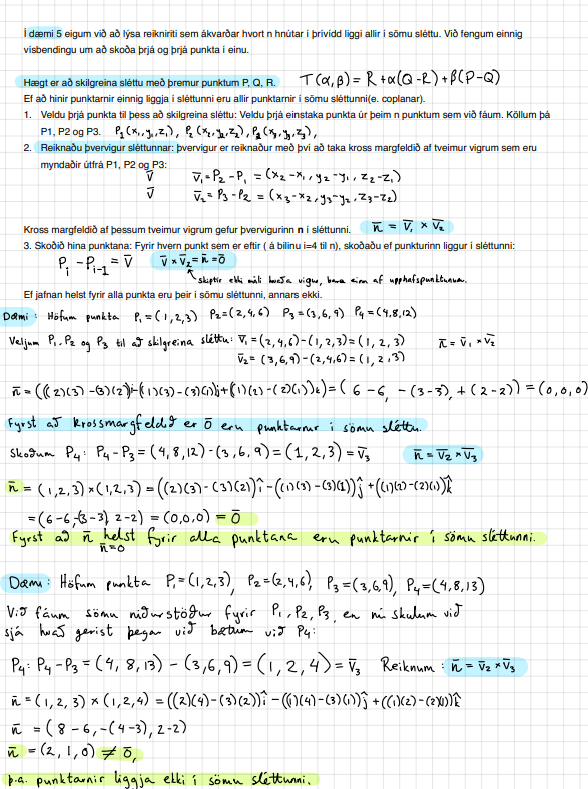 Í dæmi 5 eigum við að lýsa reikniriti sem ákvarðar hvort n hnútar í þrívídd liggi allir í sömu sléttu. Við fengum einnig
vísbendingu um að skoða þrjá og þrjá punkta í einu.
Hægt er að skilgreina sléttu með þremur punktum P, Q, R. T(α,β) = R+α(Q-R)+β(P-Q)
Ef að hinir punktarnir einnig liggja í sléttunni eru allir punktarnir í sömu sléttunni(e. coplanar).
1. Veldu þrjá punkta til þess að skilgreina sléttu: Veldu þrjá einstaka punkta úr þeim n punktum sem við fáum. Köllum þá
P1, P2 og P3. P₁(x₁,y₁,z₁), P₂(x₂,y₂,z₂), P₃(x₃,y₃,z₃),
2. Reiknaðu þvervigur sléttunnar: þvervigur er reiknaður með því að taka kross margfeldið af tveimur vigrum sem eru
myndaðir útfrá P1, P2 og P3:
v̅ v̅₁=P₂-P₁ = (x₂-x₁, y₂-y₁, z₂-z₁)
v̅ v̅₂=P₃-P₂ = (x₃-x₂, y₃-y₂, z₃-z₂)
Kross margfeldið af þessum tveimur vigrum gefur þvervigurinn n í sléttunni. n̅ = v̅₁ × v̅₂
3. Skoðið hina punktana: Fyrir hvern punkt sem er eftir ( á bilinu i=4 til n), skoðaðu ef punkturinn liggur í sléttunni:
Pᵢ - Pᵢ₋₁ = v̅ v̅ × v̅₂ = n̅ = 0̅
skiptir ekki máli hvaða vigur, bara einn af upphafspunktunum.
Ef jafnan helst fyrir alla punkta eru þeir í sömu sléttunni, annars ekki.
Dæmi: Höfum punkta P₁=(1,2,3) P₂=(2,4,6) P₃=(3,6,9) P₄=(4,8,12)
Veljum P₁, P₂ og P₃ til að skilgreina sléttu: v̅₁=(2,4,6)-(1,2,3)=(1,2,3) n̅ = v̅₁ × v̅₂
v̅₂=(3,6,9)-(2,4,6)=(1,2,3)
n̅ = (((2)(3)-(3)(2))i-((1)(3)-(3)(1))j+((1)(2)-(2)(1))k)=(6-6, -(3-3), +(2-2)) = (0,0,0)
Fyrst að krossmargfeldið er 0̅ eru punktarnir í sömu sléttu.
Skoðum P₄: P₄-P₃=(4,8,12)-(3,6,9)=(1,2,3)=v̅₃ n̅ = v̅₂ × v̅₃
n̅ = (1,2,3)×(1,2,3)=((2)(3)-(3)(2))î-((1)(3)-(3)(1))ĵ+((1)(2)-(2)(1))k̂
=(6-6,-(3-3),2-2) = (0,0,0) = 0̅
Fyrst að n̅ helst fyrir alla punktana eru punktarnir í sömu sléttunni.
n̅=0
Dæmi: Höfum punkta P₁=(1,2,3), P₂=(2,4,6), P₃=(3,6,9), P₄=(4,8,13)
Við fáum sömu niðurstöður fyrir P₁, P₂, P₃, en nú skulum við
sjá hvað gerist þegar við bætum við P₄:
P₄: P₄-P₃=(4,8,13)-(3,6,9)=(1,2,4)=v̅₃ Reiknum: n̅ = v̅₂ × v̅₃
n̅=(1,2,3)×(1,2,4)=((2)(4)-(3)(2))î-((1)(4)-(3)(1))ĵ+((1)(2)-(2)(1))k̂
n̅ = (8-6, -(4-3), 2-2)
n̅ = (2,1,0) ≠ 0̅,
þ.a. punktarnir liggja ekki í sömu sléttunni.